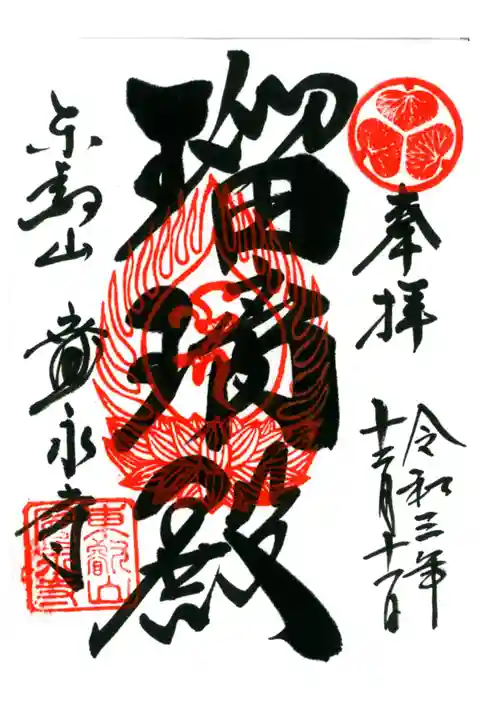 奉拝
令和三年
十二月十一日
瑠璃殿
東叡山 寛永寺
東叡山
寛永寺